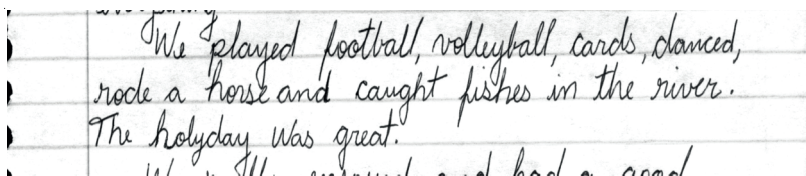 We played football, volleyball, cards, danced,
rode a horse and caught fishes in the river.
The holyday was great.
and had a good